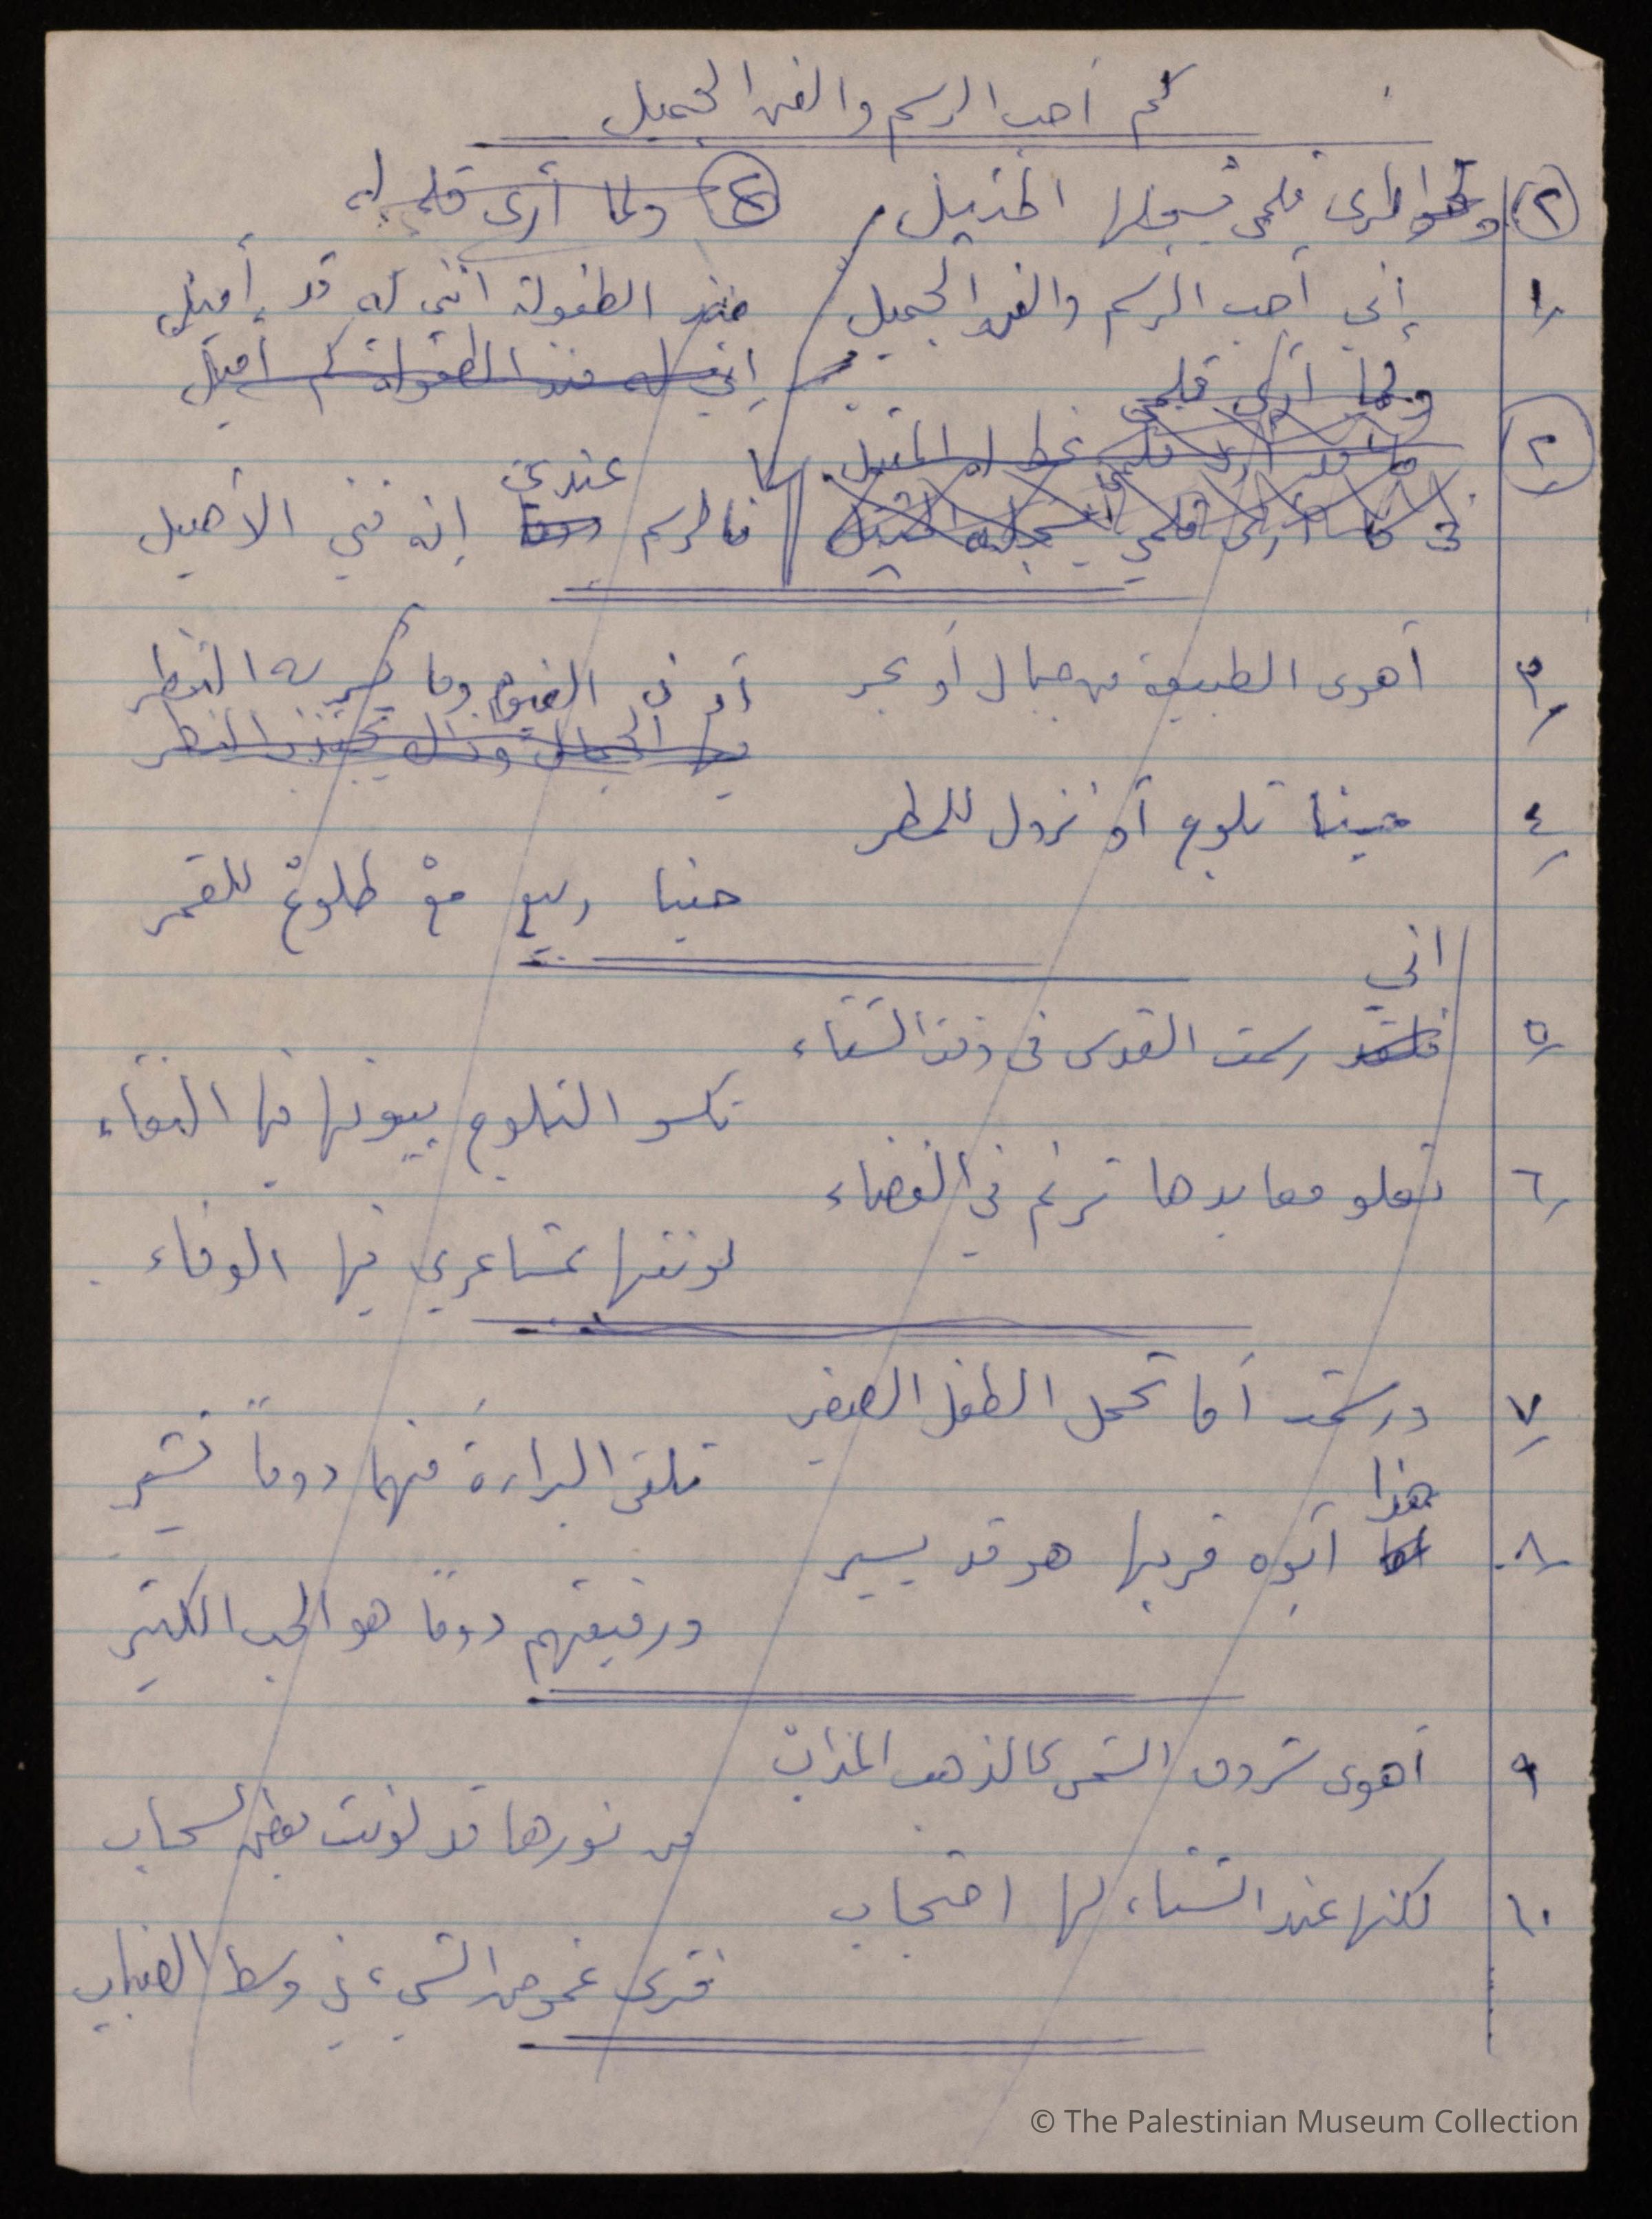 كم أحب الرسم والفن الجميل
٢ وخواطري قلمي يسجلها
ولما أرى قلمي له
١ إني أحب الرسم والفن الجميل منذ الطفولة انني له قد أميل
إني له منذ الطفولة كم أميل
ولما أرى قلمي
٢
عندي
فالرسم إنه فني الأصيل
٣ أهوى الطبيعة من جبال أو بحر أو في الغيوم وما يسر به النظر
فيها الجمال وذاك يجتذب النظر
٤ حينا ثلوج أو نزول للمطر
حينا ربيع مع طلوع للقمر
اني
٥ فلقد رسمت القدس في وقت الشتاء
تكسو الثلوج بيوتها فيها النقاء
٦ تعلو معابدها ترنم في الفضاء
لونتها بمشاعري فيها الوفاء
٧ ورسمت أما تحمل الطفل الصغير
تلقى البراءة منهما دوماً تشير
هذا
٨ أبوه قربها هو قد يسير
ورفيقهم دوماً هو الحب الكثير
٩ أهوى شروق الشمس كالذهب المذاب
من نورها قد لونت بعض السحاب
١٠ لكنها عند الشتاء لها احتجاب
فترى غموض الشيء في وسط الضباب
© The Palestinian Museum Collection